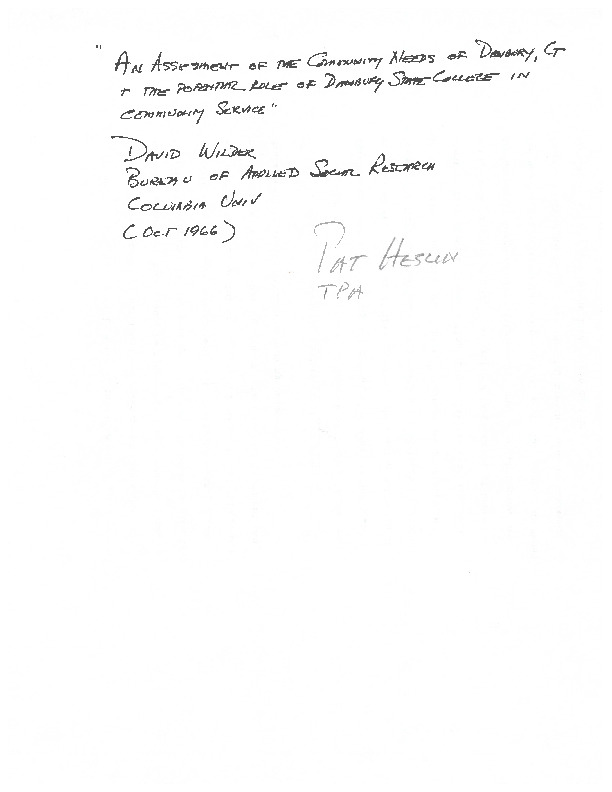 "An Assessment of the Community Needs of Danbury, Ct
+ the Potential Role of Danbury State College in
Community Service"
David Wilder
Bureau of Applied Social Research
Columbia Univ
(Oct 1966)
Pat Heslin
TPA